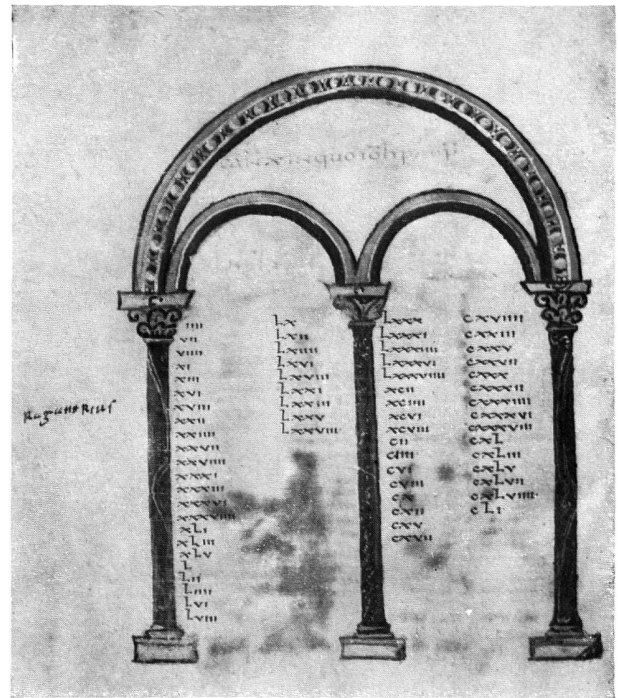 iiii
vii
viiii
xi
xiii
xvi
xviii
xxii
xxiiii
xxvii
xxviiii
xxxi
xxxiii
xxxvi
xxxviiii
xLi
xLiii
xLv
L
Lii
Liiii
Lvi
Lviii
Lx
Lxii
Lxiiii
Lxvi
Lxviii
Lxxi
Lxxiii
Lxxv
Lxxviii
Lxxx
Lxxxi
Lxxxiiii
Lxxxvi
Lxxxviiii
xcii
xciiii
xcvi
xcviii
cii
ciiii
cvi
cviii
cx
cxiii
cxv
cxvii
cxviiii
cxxiii
cxxv
cxxvii
cxxx
cxxxii
cxxxiiii
cxxxvi
cxL
cxLiii
cxLv
cxLvii
cxLviiii
cLi